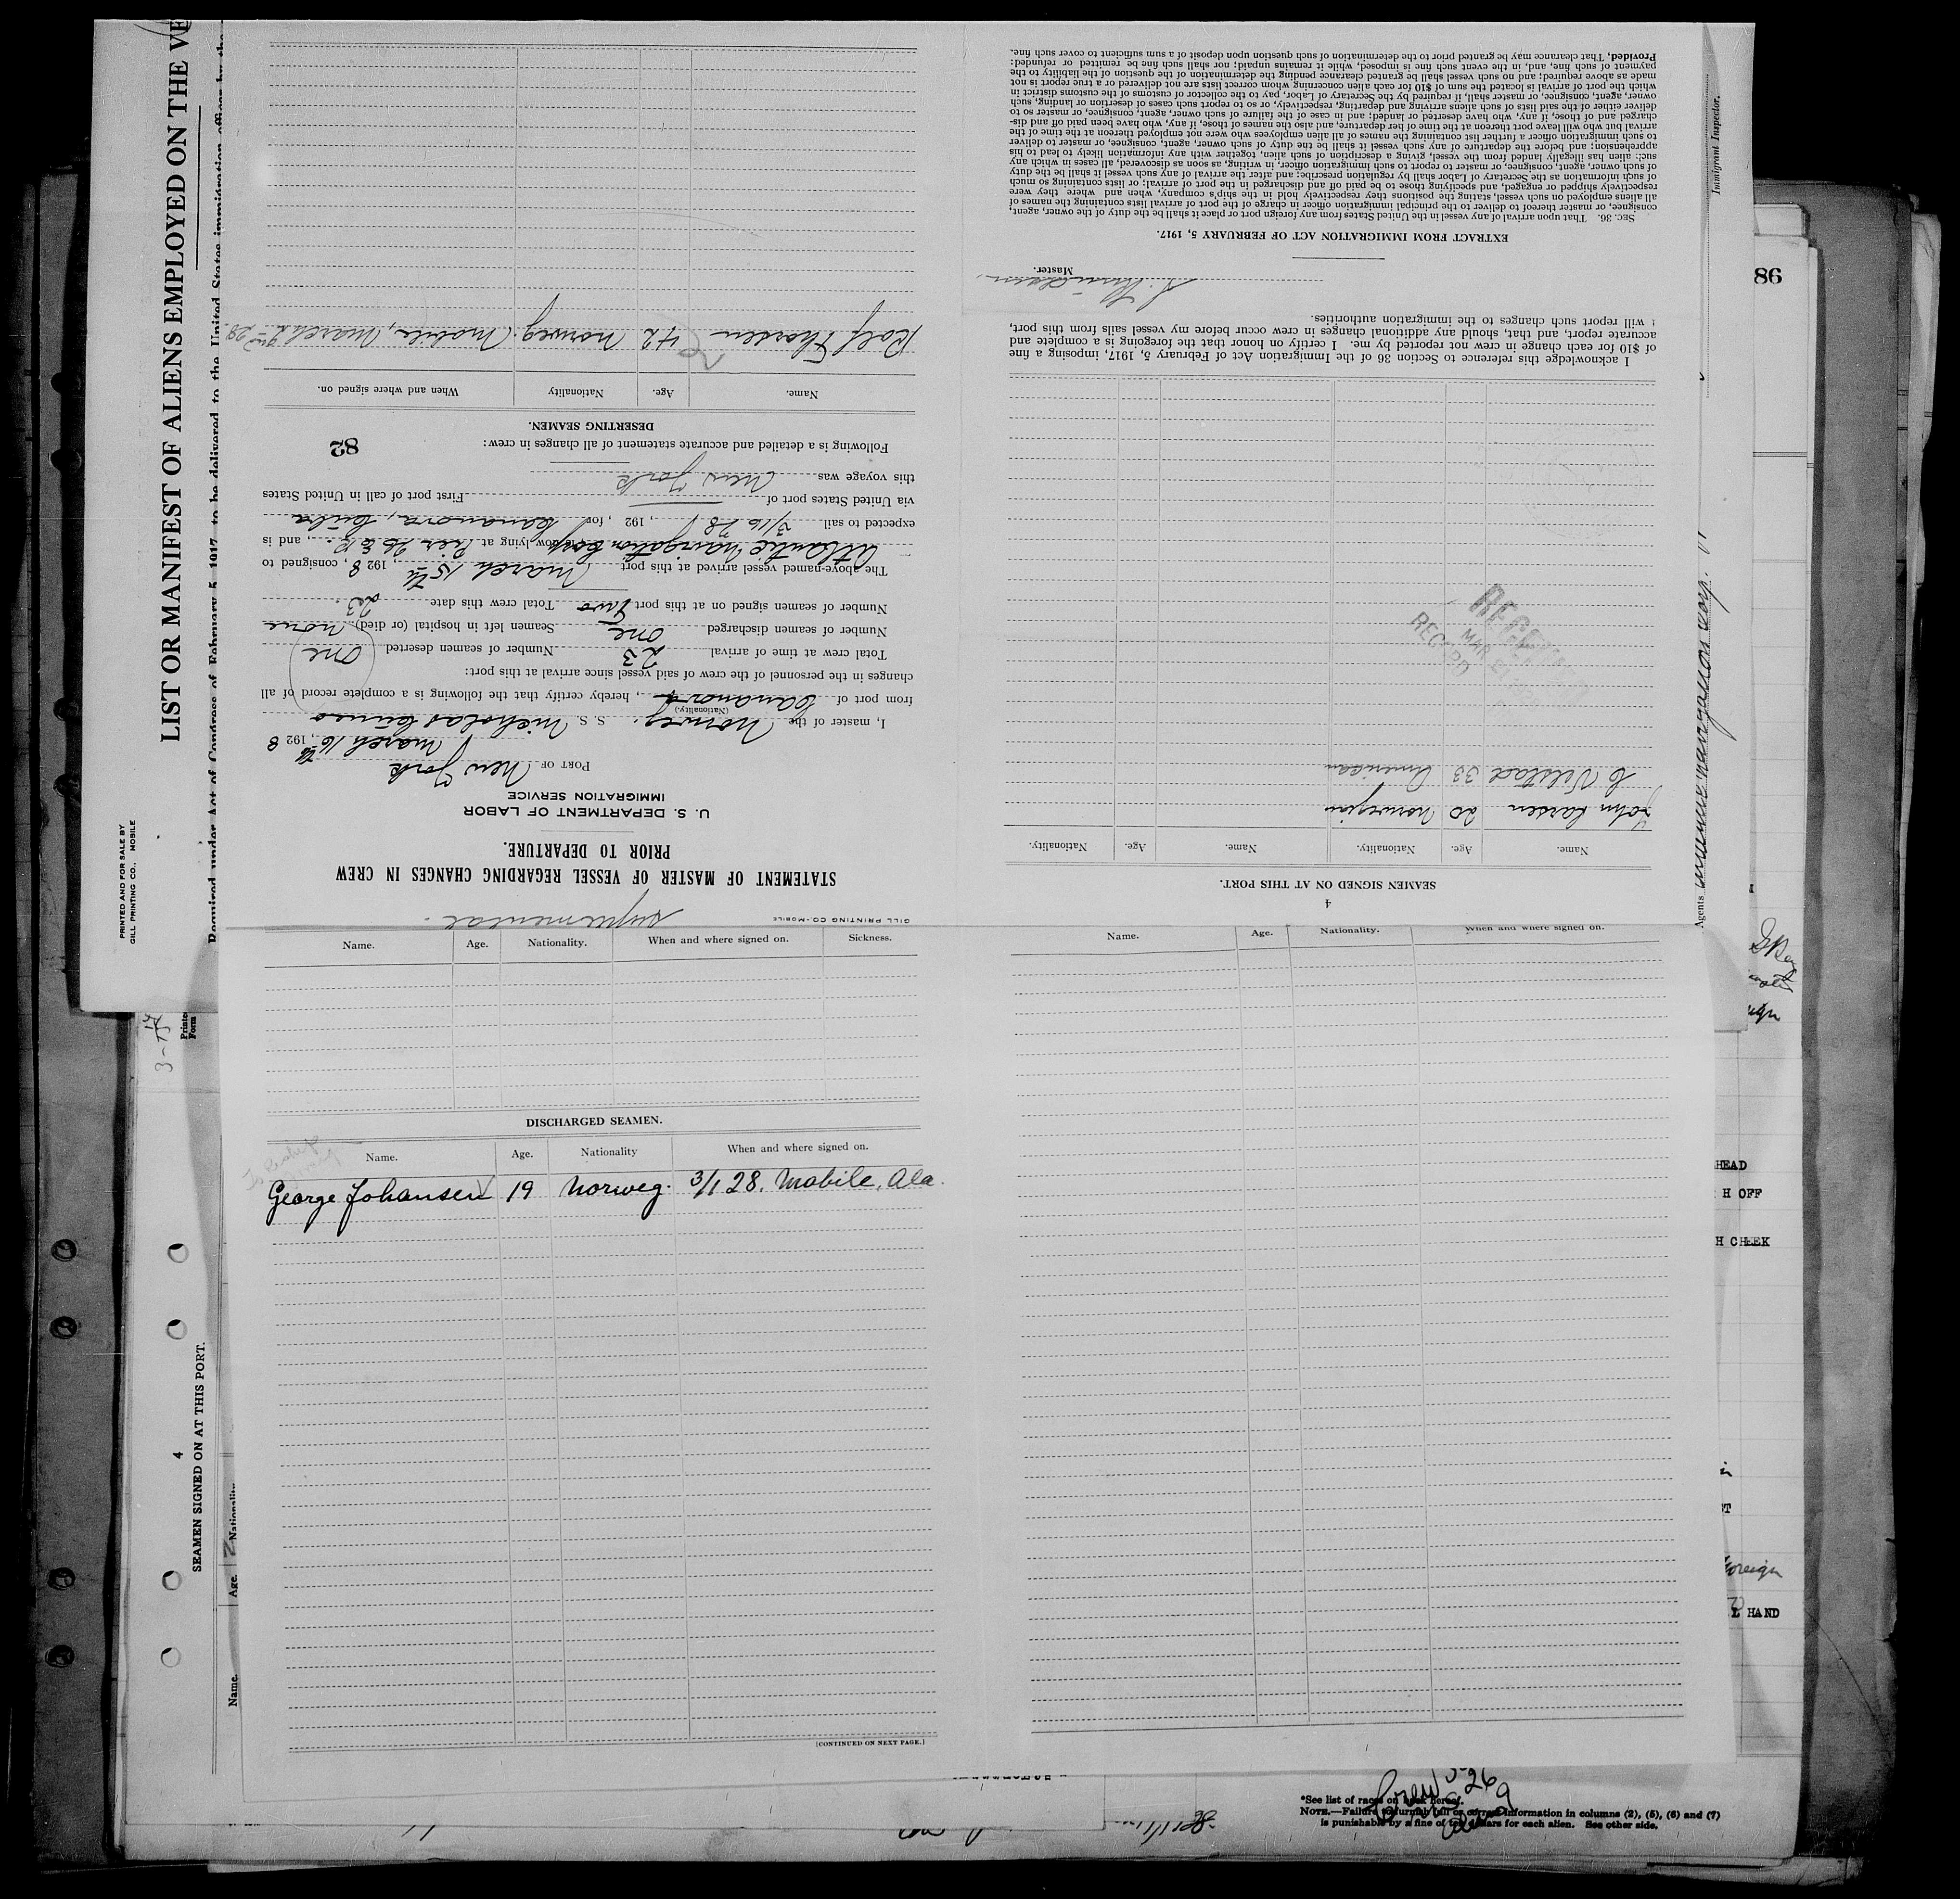 GILL PRINTING CO.-MOBILE
STATEMENT OF MASTER OF VESSEL REGARDING CHANGES IN CREW
PRIOR TO DEPARTURE.
U. S. DEPARTMENT OF LABOR
IMMIGRATION SERVICE
PORT OF New York
March 16th, 1928
I, master of the Norweg. S. S. Nicholas Cuneo
(Nationality)
from port of , hereby certify that the following is a complete record of all
changes in the personnel of the crew of said vessel since arrival at this port:
Total crew at time of arrival 23 Number of seamen deserted one
Number of seamen discharged one Seamen left in hospital (or died) none
Number of seamen signed on at this port two Total crew this date 23.
The above-named vessel arrived at this port March 15th, 1928, consigned to
Atlantic Navigation Corp now lying at Pier 26 E.R., and is
expected to sail 3/16 28, 192 , for , Cuba
via United States port of First port of call in United States
this voyage was New York
Following is a detailed and accurate statement of all changes in crew:
82
DESERTING SEAMEN.
Name. Age. Nationality When and where signed on.
Rolf Thorsen 42 Norweg. Mobile, March 2nd - 28.
4
SEAMEN SIGNED ON AT THIS PORT.
Name. Age. Nationality. Name. Age. Nationality.
John Larsen 20 Norwegian
C Velstad 33 American
RECEIVED
RECORD
I acknowledge this reference to Section 36 of the Immigration Act of February 5, 1917, imposing a fine
of $10 for each change in crew not reported by me. I certify on honor that the foregoing is a complete and
accurate report, and that, should any additional changes in crew occur before my vessel sails from this port,
I will report such changes to the immigration authorities.
Master.
EXTRACT FROM IMMIGRATION ACT OF FEBRUARY 5, 1917.
SEC. 36. That upon arrival of any vessel in the United States from any foreign port or place it shall be the duty of the owner, agent,
consignee, or master thereof to deliver to the principal immigration officer in charge of the port of arrival lists containing the names of
all aliens employed on such vessel, stating the positions they respectively hold in the ship's company, when and where they were
respectively shipped or engaged, and specifying those to be paid off and discharged in the port of arrival; or lists containing so much
of such information as the Secretary of Labor shall by regulation prescribe; and after the arrival of any such vessel it shall be the duty
of such owner, agent, consignee, or master to report to such immigration officer, in writing, as soon as discovered, all cases in which any
such alien has illegally landed from the vessel, giving a description of such alien, together with any information likely to lead to his
apprehension; and before the departure of any such vessel it shall be the duty of such owner, agent, consignee, or master to deliver
to such immigration officer a further list containing the names of all alien employees who were not employed thereon at the time of the
arrival but who will leave port thereon at the time of her departure, and also the names of those, if any, who have been paid off and dis-
charged and of those, if any, who have deserted or landed; and in case of the failure of such owner, agent, consignee, or master so to
deliver either of the said lists of such aliens arriving and departing, respectively, or so to report such cases of desertion or landing, such
owner, agent, consignee, or master shall, if required by the Secretary of Labor, pay to the collector of customs of the customs district in
which the port of arrival is located the sum of $10 for each alien concerning whom correct lists are not delivered or a true report is not
made as above required; and no such vessel shall be granted clearance pending the determination of the question of the liability to the
payment of such fine, and, in the event such fine is imposed, while it remains unpaid; nor shall such fine be remitted or refunded:
Provided, That clearance may be granted prior to the determination of such question upon deposit of a sum sufficient to cover such fine.
Name. Age. Nationality. When and where signed on. Sickness.
DISCHARGED SEAMEN.
Name. Age. Nationality When and where signed on.
George Johansen 19 Norweg. 3/1 28. Mobile, Ala.
[CONTINUED ON NEXT PAGE.]
Name. Age. Nationality. When and where signed on.
LIST OR MANIFEST OF ALIENS EMPLOYED ON THE VE
Required under Act of Congress of February 5, 1917, to be delivered to the United States immigration officer by the
PRINTED AND FOR SALE BY
GILL PRINTING CO., MOBILE
4
SEAMEN SIGNED ON AT THIS PORT.
Name. Age. Nationality.
Immigrant Inspector.
Agents
86
HEAD
H OFF
H CHEEK
Foreign
L HAND
*See list of races on back hereof.
NOTE.—Failure to furnish full or correct information in columns (2), (5), (6) and (7)
is punishable by a fine of ten dollars for each alien. See other side.